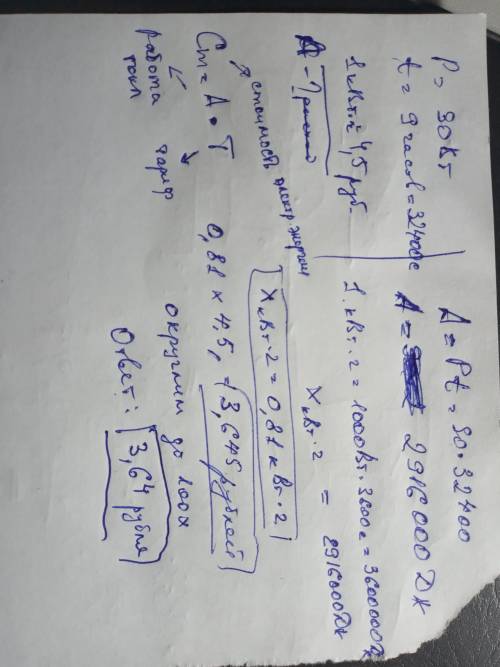 P = 90 Вт
t = 9 часов = 32400с
1 кВт·ч = 4,5 руб.
A - ?
A = Pt = 90·32400
A = 2916000 Дж
1 кВт·ч = 1000Вт·3600с = 3600000Дж
X кВт·ч = 2916000Дж
X кВт·ч = 0,81 кВт·ч
стоимость электр. энергии
Cт = A · T
работа тока
тариф
0,81 × 4,5 = 3,645 рублей
округлим до 100х
Ответ: 3,64 рубля